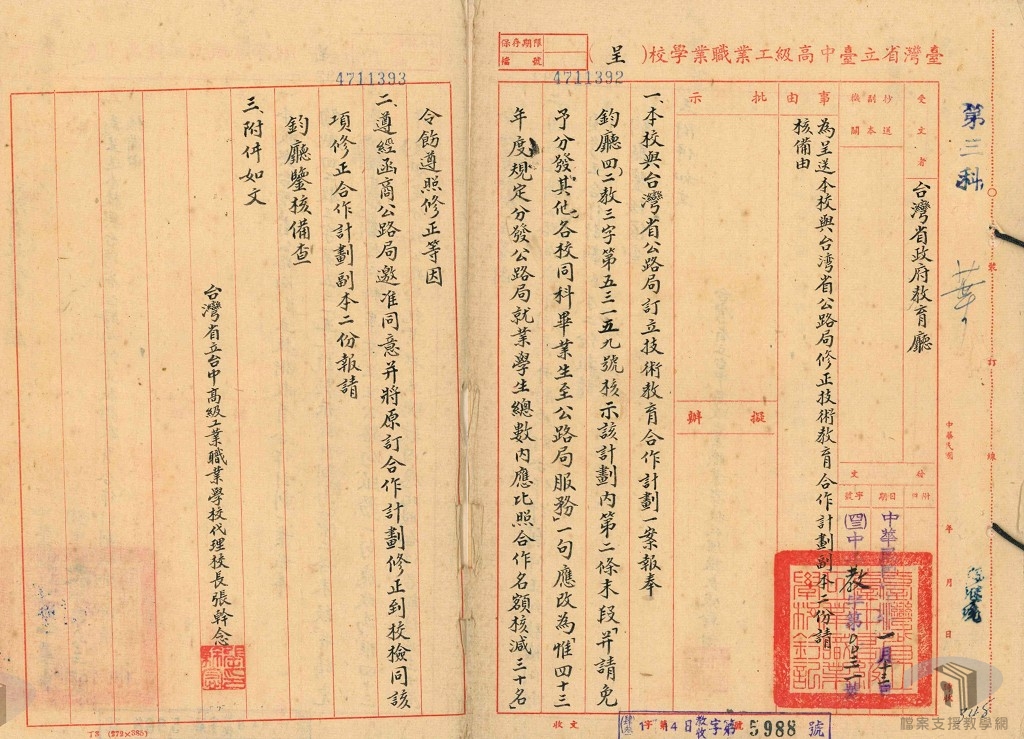 臺灣省立臺中高級工業職業學校(呈)
保存期限
檔號
4711392
4711393
第三科
受文者
台灣省政府教育廳
抄送副本機關
事由
為呈送本校與台湾省公路局修正技術教育合作計劃副本二份請
核備由
批示
擬辦
發文
附件
日期
字號
中華民國
年
月
日
一月十三日
教
裝
訂
線
一、本校與台灣省公路局訂立技術教育合作計劃一案報奉
鈞廳四(二)教三字第五三一五九號核示該計劃內第二條末段「并請免
予分發其他各校同科畢業生至公路局服務」一句應改為「惟四十三
年度規定分發公路局就業學生總數內應比照合作名額核減三十名」
令飭遵照修正等因
二、遵經函商公路局邀准同意并將原訂合作計劃修正到校檢同該
項修正合作計劃副本二份報請
鈞廳鑒核備查
三、附件如文
台灣省立台中高級工業職業學校代理校長張幹念
收文
字第5988號
檔案支援教學網